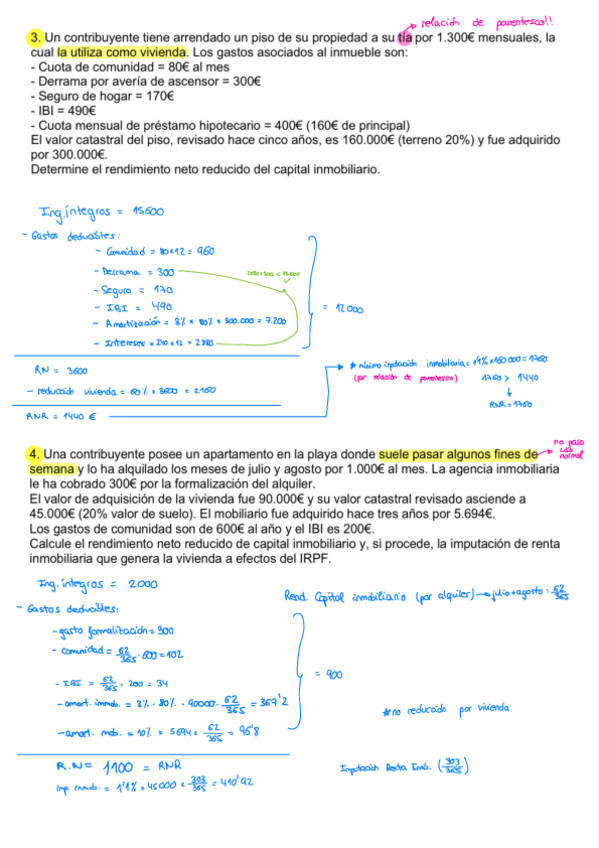 → relación de parentesco!!
3. Un contribuyente tiene arrendado un piso de su propiedad a su tía por 1.300€ mensuales, la
cual la utiliza como vivienda. Los gastos asociados al inmueble son:
- Cuota de comunidad = 80€ al mes
- Derrama por avería de ascensor = 300€
- Seguro de hogar = 170€
- IBI = 490€
- Cuota mensual de préstamo hipotecario = 400€ (160€ de principal)
El valor catastral del piso, revisado hace cinco años, es 160.000€ (terreno 20%) y fue adquirido
por 300.000€.
Determine el rendimiento neto reducido del capital inmobiliario.
Ing.íntegros = 15,600
- Gastos deducibles:
- Comunidad = 80x12 = 960
- Derrama = 300
- Seguro = 170
- IBI = 490
- Amortización = 3% x 80% x 300.000 = 7.200
- Intereses = 240 x 12 = 2880
= 12000
RN = 3600
- reducción vivienda = 60% x 3600 = 2160
RNR = 1440 €
* mínimo imputación inmobiliaria = 1'1% x 160000 = 1760
(por relación de parentesco) 1760 > 1440
↓
RNR = 1760
4. Una contribuyente posee un apartamento en la playa donde suele pasar algunos fines de
semana y lo ha alquilado los meses de julio y agosto por 1.000€ al mes. La agencia inmobiliaria
le ha cobrado 300€ por la formalización del alquiler.
→ no pasa uso normal
El valor de adquisición de la vivienda fue 90.000€ y su valor catastral revisado asciende a
45.000€ (20% valor de suelo). El mobiliario fue adquirido hace tres años por 5.694€.
Los gastos de comunidad son de 600€ al año y el IBI es 200€.
Calcule el rendimiento neto reducido de capital inmobiliario y, si procede, la imputación de renta
inmobiliaria que genera la vivienda a efectos del IRPF.
Ing. íntegros = 2000
Rend. Capital inmobiliario (por alquiler) → julio+agosto: 62/365
- Gastos deducibles:
- gasto formalización = 300
- comunidad = 62/365 · 600 = 102
- IBI = 62/365 · 200 = 34
- amort. inmob. = 3% · 80% · 90000 · 62/365 = 369'2
- amort. mob. = 10% x 5694 x 62/365 = 96'8
= 900
* no reducción por vivienda
R.N = 1100 = RNR
imp inmob. = 1'1% x 45000 x 303/365 = 410'92
Imputación Renta Inmb. (303/365)